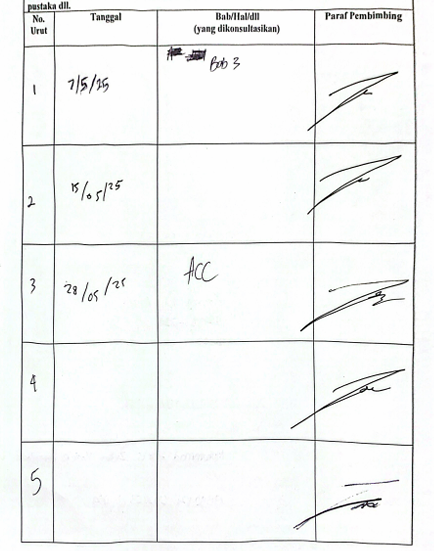 pustaka dll.
No. Urut
Tanggal
Bab/Hal/dll
(yang dikonsultasikan)
Paraf Pembimbing
1
7/5/25
Bab 3
2
15/05/25
3
28/05/25
ACC
4
5